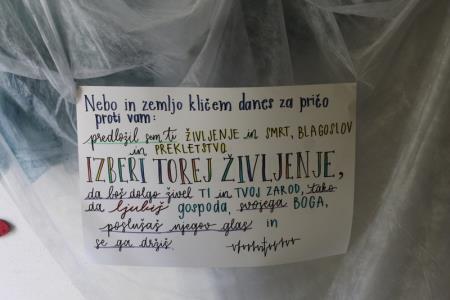 Nebo in zemljo kličem danes za pričo
proti vam:
predložil sem ti ŽIVLJENJE in SMRT, BLAGOSLOV
in PREKLETSTVO.
IZBERI TOREJ ŽIVLJENJE,
da boš dolgo živel TI in TVOJ ZAROD, tako
da ljubiš gospoda, svojega BOGA,
poslušaš njegov glas in
se ga držiš.